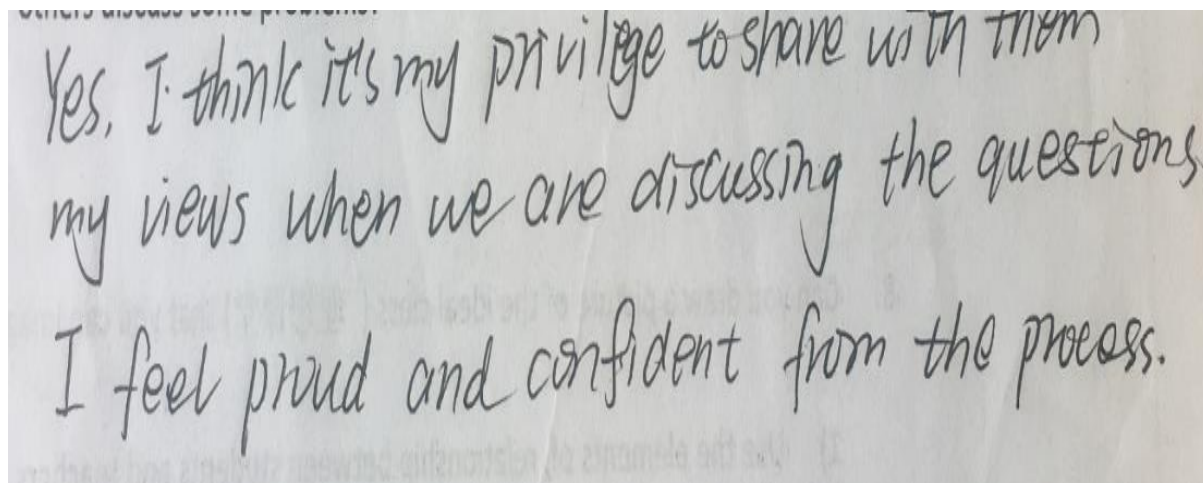 others discuss some problems?
Yes, I think it's my privilege to share with them
my views when we are discussing the questions
I feel proud and confident from the process.